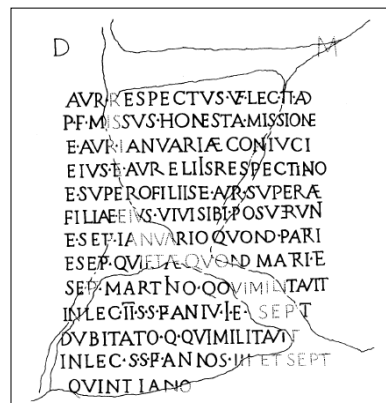 D M
AVR·RESPECTVS·VE·LEG·II·AD
P·F·MISSVS·HONESTA·MISSIONE
E·AVR·IANVARIÆ CONIVCI
EIVS·E·AVRELIIS RESPECTINO
E·SVPERO FILIIS E·AVR·SVPERÆ
FILIAE EIVS·VIVI SIBI·POSVERVN
E·SET·IANVARIO QVOND·PARI
E SEP·QVIETÆ QVOND MATRI·E
SEP·MARTINO·QO VIMILITAVIT
IN LEG·II·S·S·P·AN IV·I·E· SEPT
DVBITATO·Q·QVIMILITAVIT
IN LEC·S·S·P·ANNOS·III ET SEPT
QVINTIANO